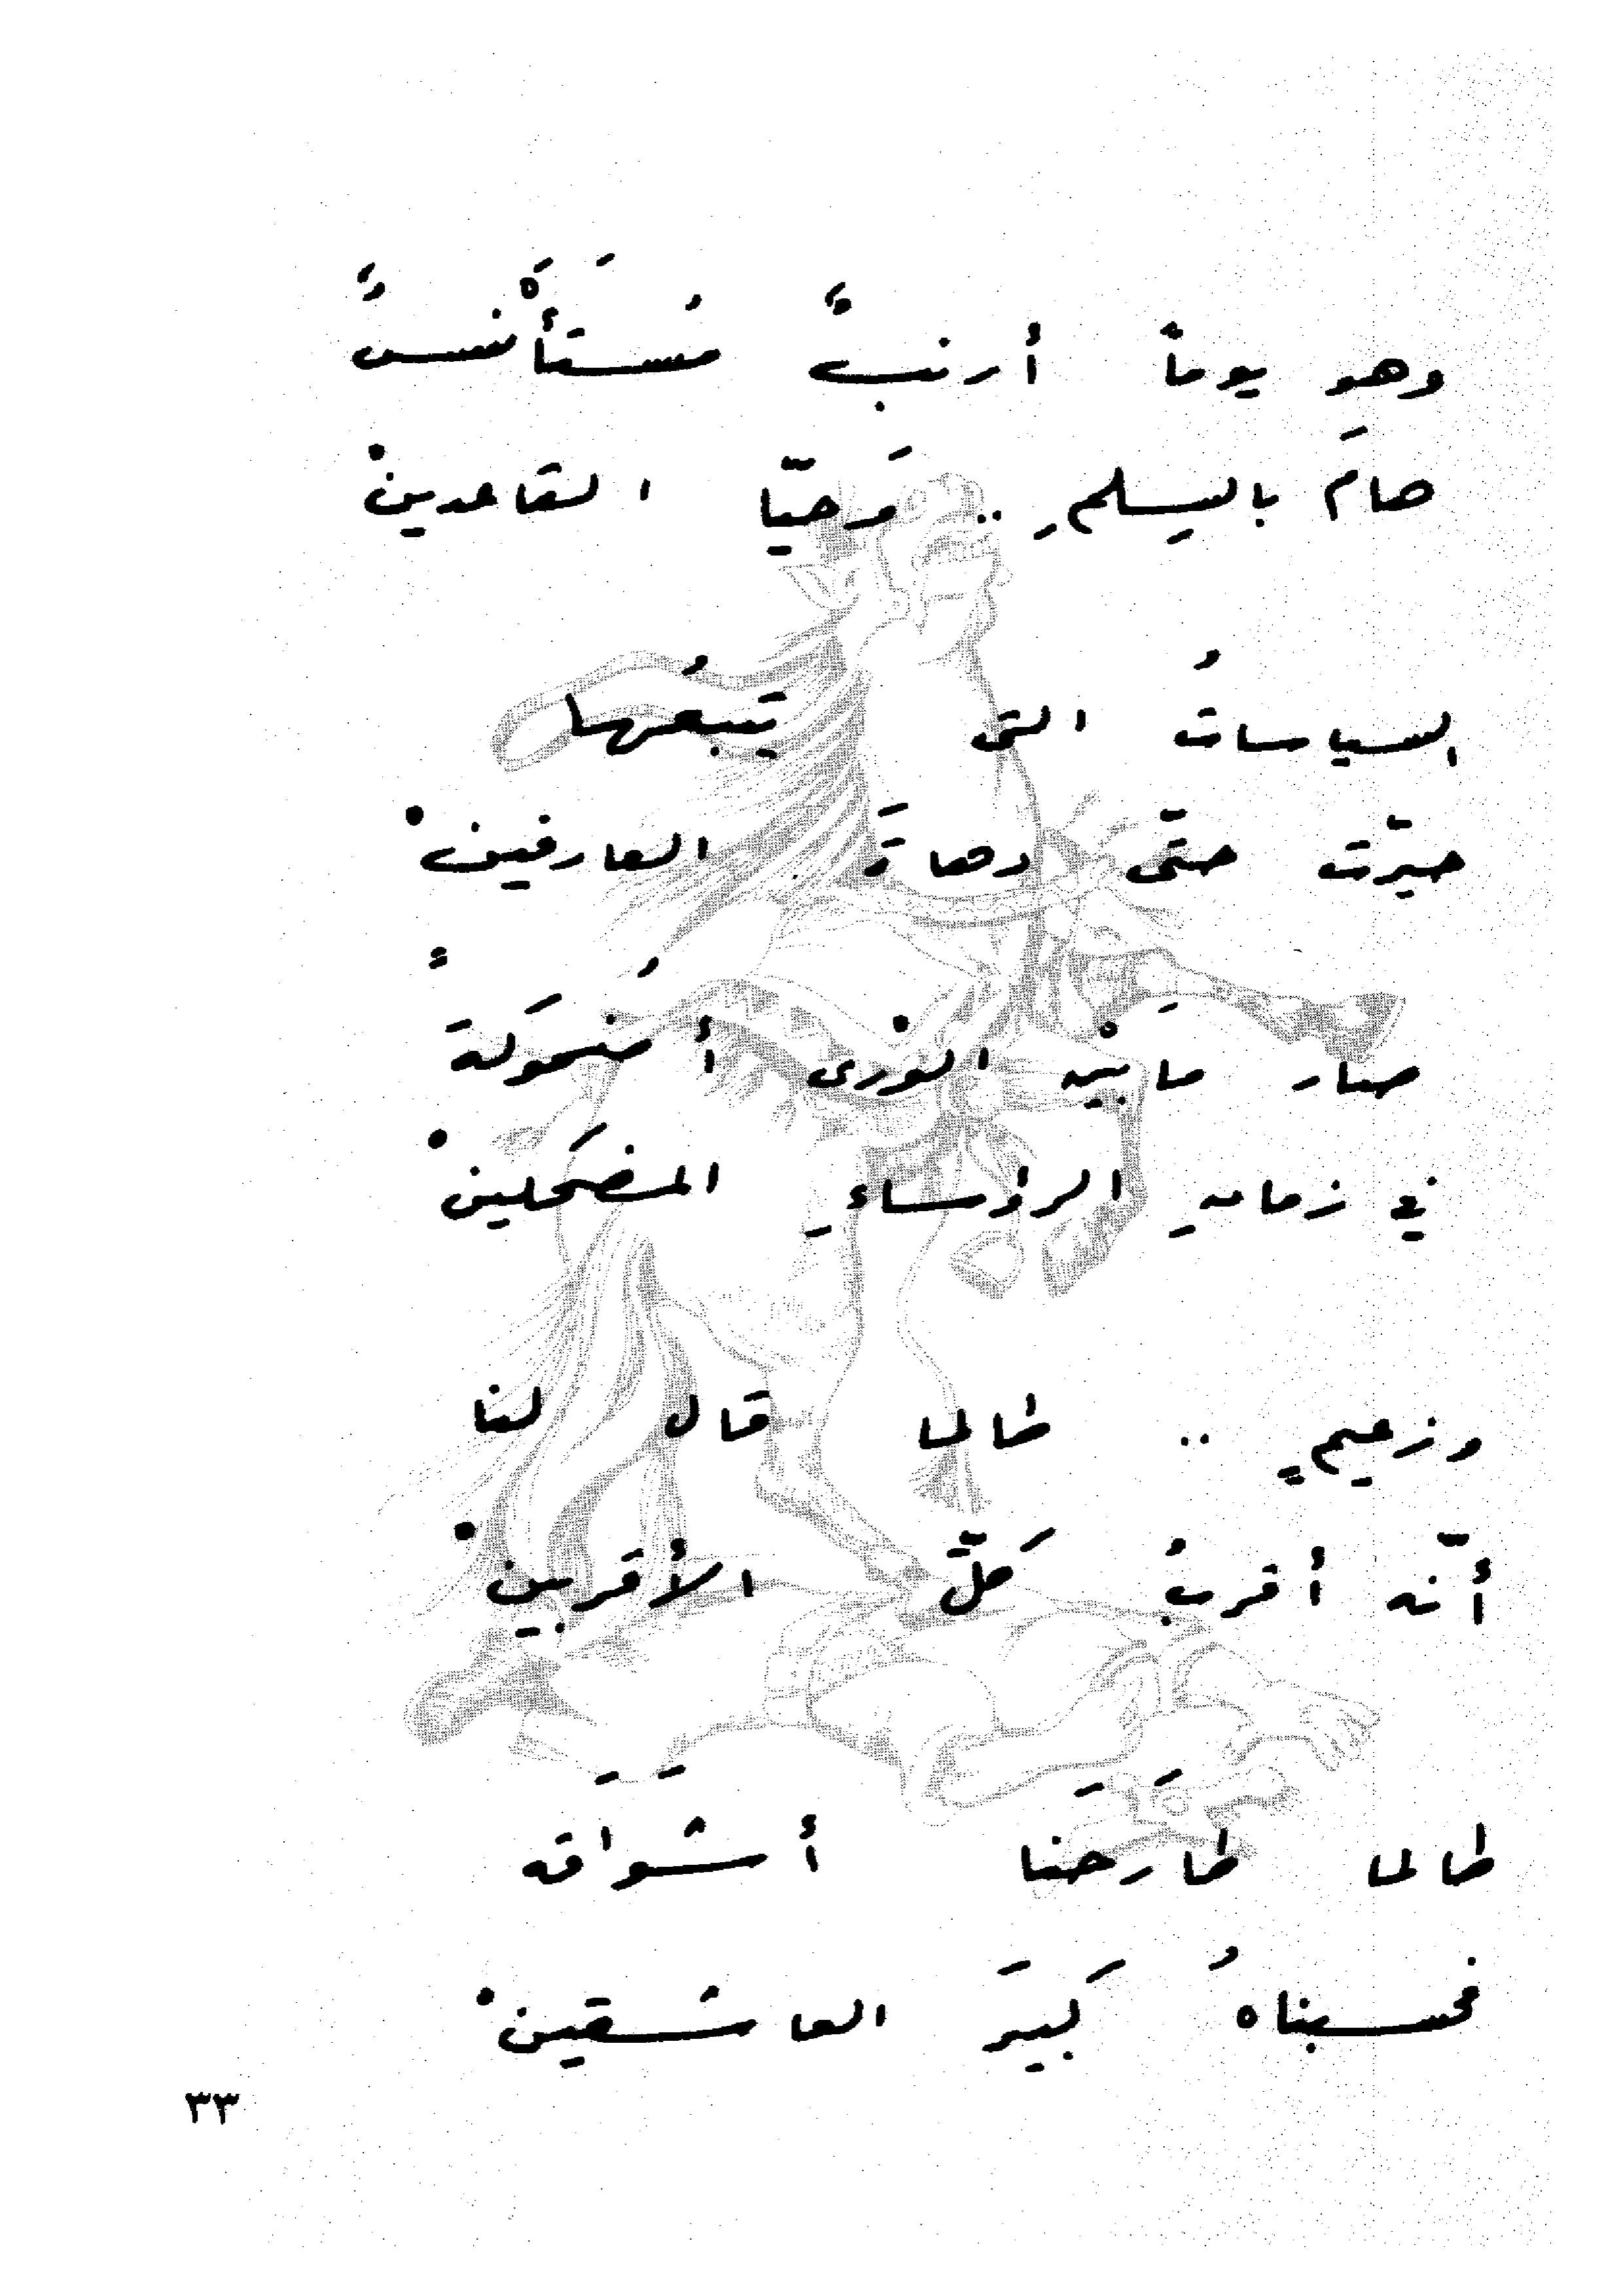 وهو يوماً أرنبٌ مُستَأْنَسٌ
هامَ بالسِلمِ .. وَحيّا القاعدينْ
السياساتُ التى يتبعُها
حيّرت حتّى دهاةَ العارفينْ
صار مَا بيْن الوْرى أُضحوَكةً
في زمانِ الرؤساءِ المضحَكينْ
وزعيمٍ .. طالما قال لنا
أنّه أقربُ كَلّ الأقربينْ
طالما طَارَحَنا أشوَاقَه
فحسبناهُ كَبيَر العاشقينْ
٣٣